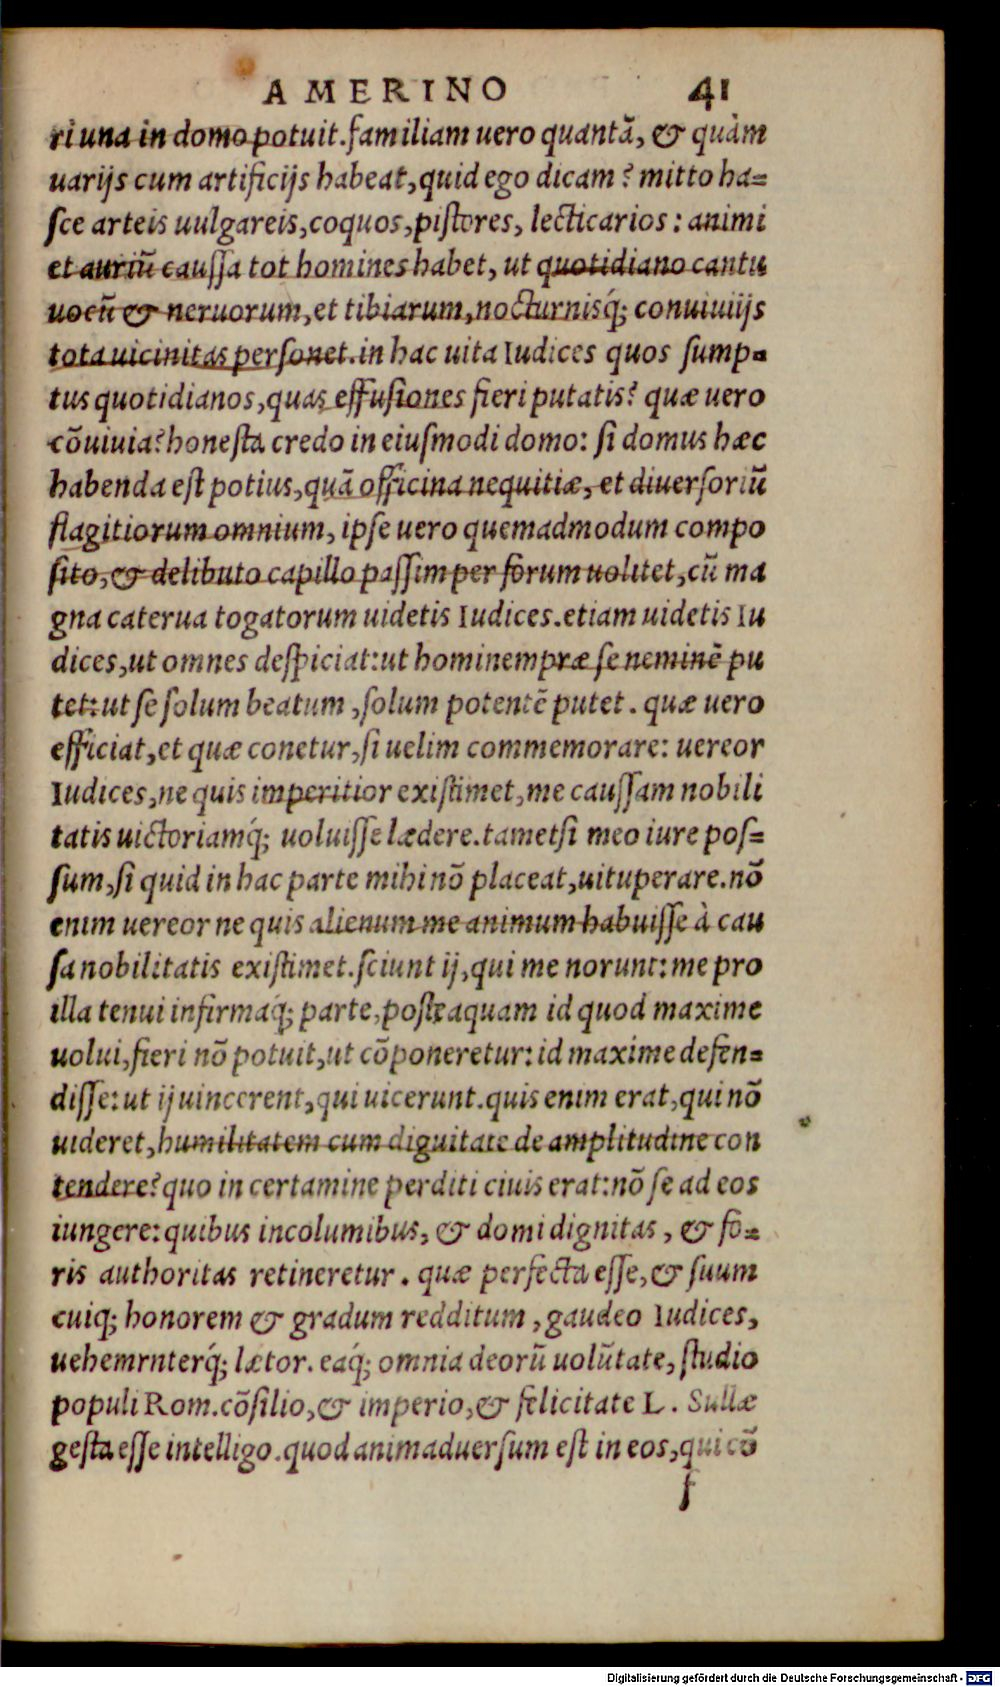 AMERINO 41
ri una in domo potuit. familiam uero quantã, & quàm
uarijs cum artificijs habeat, quid ego dicam? mitto ha=
sce arteis uulgareis, coquos, pistores, lecticarios: animi
et auriũ caussa tot homines habet, ut quotidiano cantu
uocũ & neruorum, et tibiarum, nocturnisq́; conuiuiijs
tota uicinitas personet. in hac uita Iudices quos sump=
tus quotidianos, quas effusiones fieri putatis? quæ uero
cõuiuia? honesta credo in eiusmodi domo: si domus hæc
habenda est potius, quã officina nequitiæ, et diuersoriũ
flagitiorum omnium, ipse uero quemadmodum compo
sito, & delibuto capillo passim per forum uolitet, cũ ma
gna caterua togatorum uidetis Iudices. etiam uidetis Iu
dices, ut omnes despiciat: ut hominem præ se neminẽ pu
tet: ut se solum beatum, solum potentẽ putet. quæ uero
efficiat, et quæ conetur, si uelim commemorare: uereor
Iudices, ne quis imperitior existimet, me caussam nobili
tatis uictoriamq́; uoluisse lædere. tametsi meo iure pos=
sum, si quid in hac parte mihi nõ placeat, uituperare. nõ
enim uereor ne quis alienum me animum habuisse à cau
sa nobilitatis existimet. sciunt ij, qui me norunt: me pro
illa tenui infirmaq́; parte, posteaquam id quod maxime
uolui, fieri nõ potuit, ut cõponeretur: id maxime defen=
disse: ut ij uincerent, qui uicerunt. quis enim erat, qui nõ
uideret, humilitatem cum diguitate de amplitudine con
tendere? quo in certamine perditi ciuis erat: nõ se ad eos
iungere: quibus incolumibus, & domi dignitas, & fo=
ris authoritas retineretur. quæ perfecta esse, & suum
cuiq; honorem & gradum redditum, gaudeo Iudices,
uehemrnterq́; lætor. eaq́; omnia deorũ uolũtate, studio
populi Rom. cõsilio, & imperio, & felicitate L. Sullæ
gesta esse intelligo. quod animaduersum est in eos, qui cõ
f
Digitalisierung gefördert durch die Deutsche Forschungsgemeinschaft - DFG